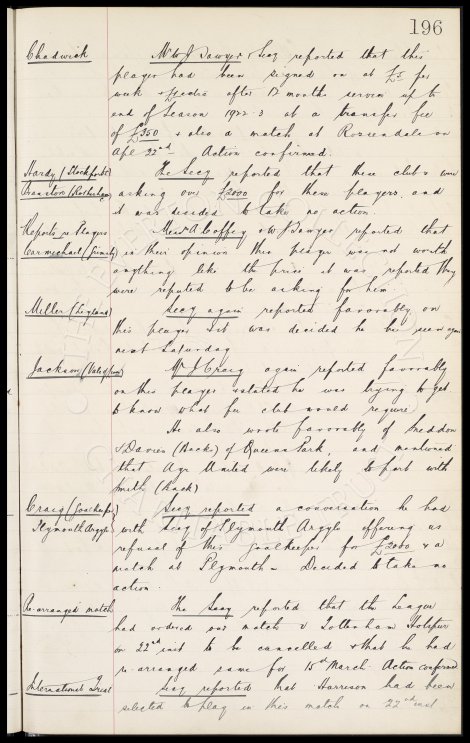 196
Chadwick Mr W J Sawyer & Secy reported that this
player had been signed on at £5 per
week & £6 extra after 12 months service up to
end of Season 1922-3 at a transfer fee
of £350 & also a match at Rossendale on
Apl 22nd Action confirmed.
Hardy (Stockport) The Secy reported that these clubs were
Cranston (Rotherham) asking over £2000 for these players and
it was decided to take no action.
Reports re Players Messrs A Coffey & W J Sawyer reported that
Carmichael (Grimsby) in their opinion this player was not worth
anything like the price it was reported they
were reputed to be asking for him.
Miller (Leyland) Secy again reported favorably on
this player & it was decided he be seen again
next Saturday
Jackson (Vale of Leven) Mr J Craig again reported favorably
on this player & stated he was trying to get
to know what fee club would require
He also wrote favorably of Sneddon
& Davies (Back) of Queens Park, and mentioned
that Ayr United were likely to part with
Smith (Back)
Craig (Goalkeeper) Secy reported a conversation he had
Plymouth Argyle with Secy of Plymouth Argyle offering us
refusal of this Goalkeeper for £2000 & a
match at Plymouth - Decided to take no
action.
Re-arranged match The Secy reported that the League
had ordered our match v Tottenham Hotspur
on 22nd inst to be cancelled & that he had
re-arranged same for 15th March. Action confirmed
International Trial Secy reported that Harrison had been
selected to play in this match on 22nd inst.